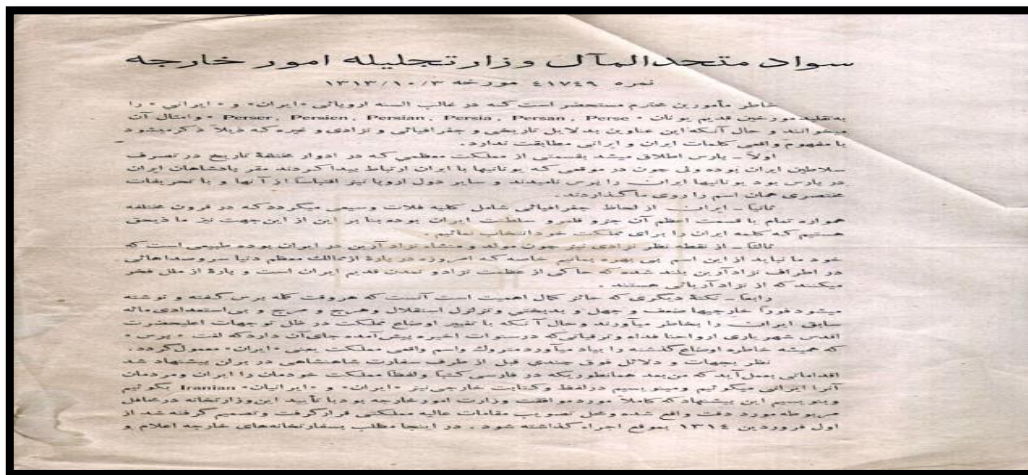 سواد متحدالمآل وزارتجلیله امور خارجه
نمره ۴۱۷۴۹ مورخه ۱۳۱۳/۱۰/۳
خاطر مأمورین محترم مستحضر است که در غالب السنه اروپائی «ایران» و «ایرانی» را
به تقلید مورخین قدیم یونان «Perser, Persien, Persian, Persia, Persan, Perse» وامثال آن
میخوانند و حال آنکه این عناوین بدلایل تاریخی و جغرافیائی و نژادی و غیره که ذیلاً ذکر میشود
با مفهوم واقعی کلمات ایران و ایرانی مطابقت ندارد.
اولاً - پارس اطلاق میشد بقسمتی از مملکت معظمی که در ادوار مختلفهٔ تاریخ در تصرف
سلاطین ایران بوده ولی چون در موقعی که یونانیها با ایران ارتباط پیدا کردند مقر پادشاهان ایران
در پارس بود یونانیها ایران را پرس نامیدند و سایر دول اروپا نیز اقتباساً از آنها و با تحریفات
مختصری همان اسم را روی ما گذاردند.
ثانیاً - ایران از لحاظ جغرافیائی شامل کلیه فلات وسیعی میگردد که در قرون مختلفه
همواره تمام یا قسمت اعظم آن جزو قلمرو سلطنت ایران بوده بنا بر این از این جهت نیز ما ذیحق
هستیم که کلمه ایران را برای مملکت خود انتخاب نمائیم.
ثالثاً - از نقطه نظر نژادی نیز چون مولد و منشاء نژاد آرین در ایران بوده طبیعی است که
خود ما نباید از این اسم بی بهره بمانیم خاصه که امروزه در پارهٔ از ممالک معظم دنیا سر و صداهائی
در اطراف نژاد آرین بلند شده که حاکی از عظمت نژاد و تمدن قدیم ایران است و پارهٔ از ملل فخر
میکنند که از نژاد آریائی هستند.
رابعاً - نکتهٔ دیگری که حائز کمال اهمیت است آنست که هر وقت کلمه پرس گفته و نوشته
میشود فوراً خارجیها ضعف و جهل و بدبختی و تزلزل استقلال و هرج و مرج و بی استعدادی ماله
سابق ایران را بخاطر میآورند و حال آنکه با تغییر اوضاع مملکت در ظل توجهات اعلیحضرت
اقدس شهریاری ارواحنا فداه و ترقیاتی که در سنوات اخیره پیش آمده جای آن دارد که لغت «پرس»
که همیشه خاطره اوضاع گذشته را بیاد میآورد متروک و اسم واقعی مملکت یعنی «ایران» معمول گردد.
نظر بجهات و دلائل فوق چندی قبل از طرف سفارت شاهنشاهی در برلن پیشنهاد شد
اقداماتی بعمل آید که من بعد همانطوریکه در فارسی کتباً ولفظاً مملکت خودمان را ایران و مردمان
آنرا ایرانی میگوئیم و مینویسیم در لفظ و کتابت خارجی نیز «ایران» و «ایرانیان» Iranian بگوئیم
و بنویسیم این پیشنهاد که کاملاً مورد موافقت وزارت امور خارجه بود با تأیید این وزارتخانه در محافل
مربوطه مورد دقت واقع شده و محل تصویب مقامات عالیه مملکتی قرار گرفت و تصمیم گرفته شد از
اول فروردین ۱۳۱۴ بموقع اجراء گذاشته شود. در اینجا مطلب بسفارتخانه‌های خارجه اعلام و